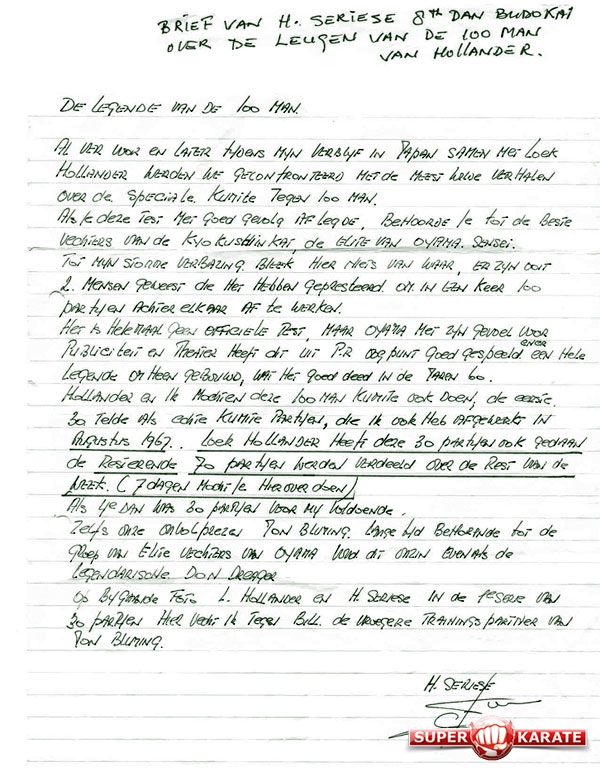 BRIEF VAN H. SERIESE 8th DAN BUDOKAI
OVER DE LEUGEN VAN DE 100 MAN
VAN HOLLANDER.
DE LEGENDE VAN DE 100 MAN.
AL VER VOOR EN LATER TYDENS MYN VERBLYF IN JAPAN SAMEN MET LOEK
HOLLANDER WERDEN WE GECONFRONTEERD MET DE MEEST WILDE VERHALEN
OVER DE SPECIALE KUMITE TEGEN 100 MAN.
ALS JE DEZE TEST MET GOED GEVOLG AFLEGDE, BEHOORDE JE TOT DE BESTE
VECHTERS VAN DE KYOKUSHINKAI, DE ELITE VAN OYAMA SENSEI.
TOT MYN STOMME VERBAZING BLEEK HIER NIETS VAN WAAR, ER ZYN OOIT
2 MENSEN GEWEEST DIE HET HEBBEN GEPRESTEERD OM IN EEN KEER 100
PARTYEN ACHTER ELKAAR AF TE WERKEN.
HET IS HELEMAAL GEEN OFFICIELE TEST, MAAR OYAMA MET ZYN GEVOEL VOOR
PUBLICITEIT EN THEATER HEEFT DIT UIT P.R OOGPUNT GOED GESPEELD EN ER EEN HELE
LEGENDE OM HEEN GEBOUWD, WAT HET GOED DEED IN DE JAREN 60.
HOLLANDER EN IK MOCHTEN DEZE 100 MAN KUMITE OOK DOEN, DE EERSTE
30 TELDE ALS ECHTE KUMITE PARTYEN, DIE IK OOK HEB AFGEWERKT IN
AUGUSTUS 1967. LOEK HOLLANDER HEEFT DEZE 30 PARTYEN OOK GEDAAN
DE RESTERENDE 70 PARTYEN WERDEN VERDEELD OVER DE REST VAN DE
WEEK. (7 DAGEN MOCHT JE HIEROVER DOEN)
ALS 4e DAN WAS 30 PARTYEN VOOR MY VOLDOENDE.
ZELFS ONZE ONVOLPREZEN JON BLUMING LANGE TYD BEHORENDE TOT DE
GROEP VAN ELITE VECHTERS VAN OYAMA VOND DIT ONZIN EVENALS DE
LEGENDARISCHE DON DREAGER
OP BYGAANDE FOTO L. HOLLANDER EN H. SERIESE IN DE 1e SERIE VAN
30 PARTYEN HIER VECHT IK TEGEN BILL DE VROEGERE TRAININGSPARTNER VAN
JON BLUMING.
H. SERIESE
SUPER KARATE